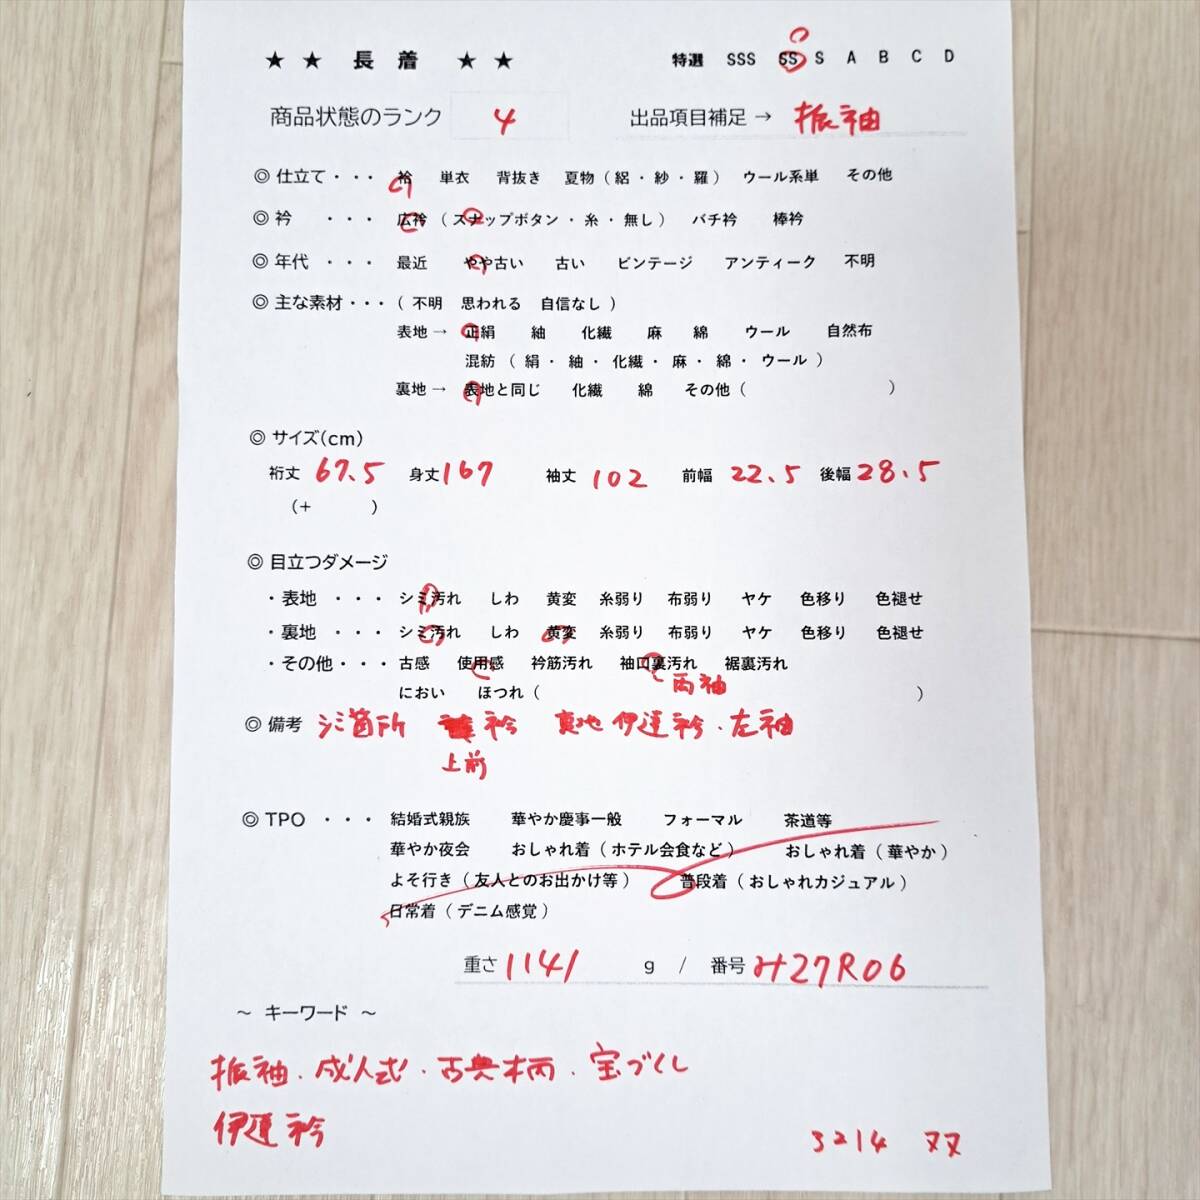 ★ ★ 長 着 ★ ★ 特選 SSS SS S A B C D
商品状態のランク 4 出品項目補足 → 振袖
◎ 仕立て ・・・ 袷 単衣 背抜き 夏物 ( 絽 ・ 紗 ・ 羅 ) ウール系単 その他
◎ 衿 ・・・ 広衿 ( スナップボタン ・ 糸 ・ 無し ) バチ衿 棒衿
◎ 年代 ・・・ 最近 やや古い 古い ビンテージ アンティーク 不明
◎ 主な素材 ・・・ ( 不明 思われる 自信なし )
表地 → 正絹 紬 化繊 麻 綿 ウール 自然布
混紡 ( 絹 ・ 紬 ・ 化繊 ・ 麻 ・ 綿 ・ ウール )
裏地 → 表地と同じ 化繊 綿 その他 ( )
◎ サイズ(cm)
裄丈 67.5 身丈 167 袖丈 102 前幅 22.5 後幅 28.5
(+ )
◎ 目立つダメージ
・表地 ・・・ シミ汚れ しわ 黄変 糸弱り 布弱り ヤケ 色移り 色褪せ
・裏地 ・・・ シミ汚れ しわ 黄変 糸弱り 布弱り ヤケ 色移り 色褪せ
・その他 ・・・ 古感 使用感 衿筋汚れ 袖口裏汚れ 裾裏汚れ
両袖
におい ほつれ ( )
◎ 備考 シミ箇所 衿 裏地 伊達衿・左袖
上前
◎ TPO ・・・ 結婚式親族 華やか慶事一般 フォーマル 茶道等
華やか夜会 おしゃれ着 ( ホテル会食など ) おしゃれ着 ( 華やか )
よそ行き ( 友人とのお出かけ等 ) 普段着 ( おしゃれカジュアル )
日常着 ( デニム感覚 )
重さ 1141 g / 番号 み27R06
～ キーワード ～
振袖・成人式・古典柄・宝づくし
伊達衿
3214 ヌヌ